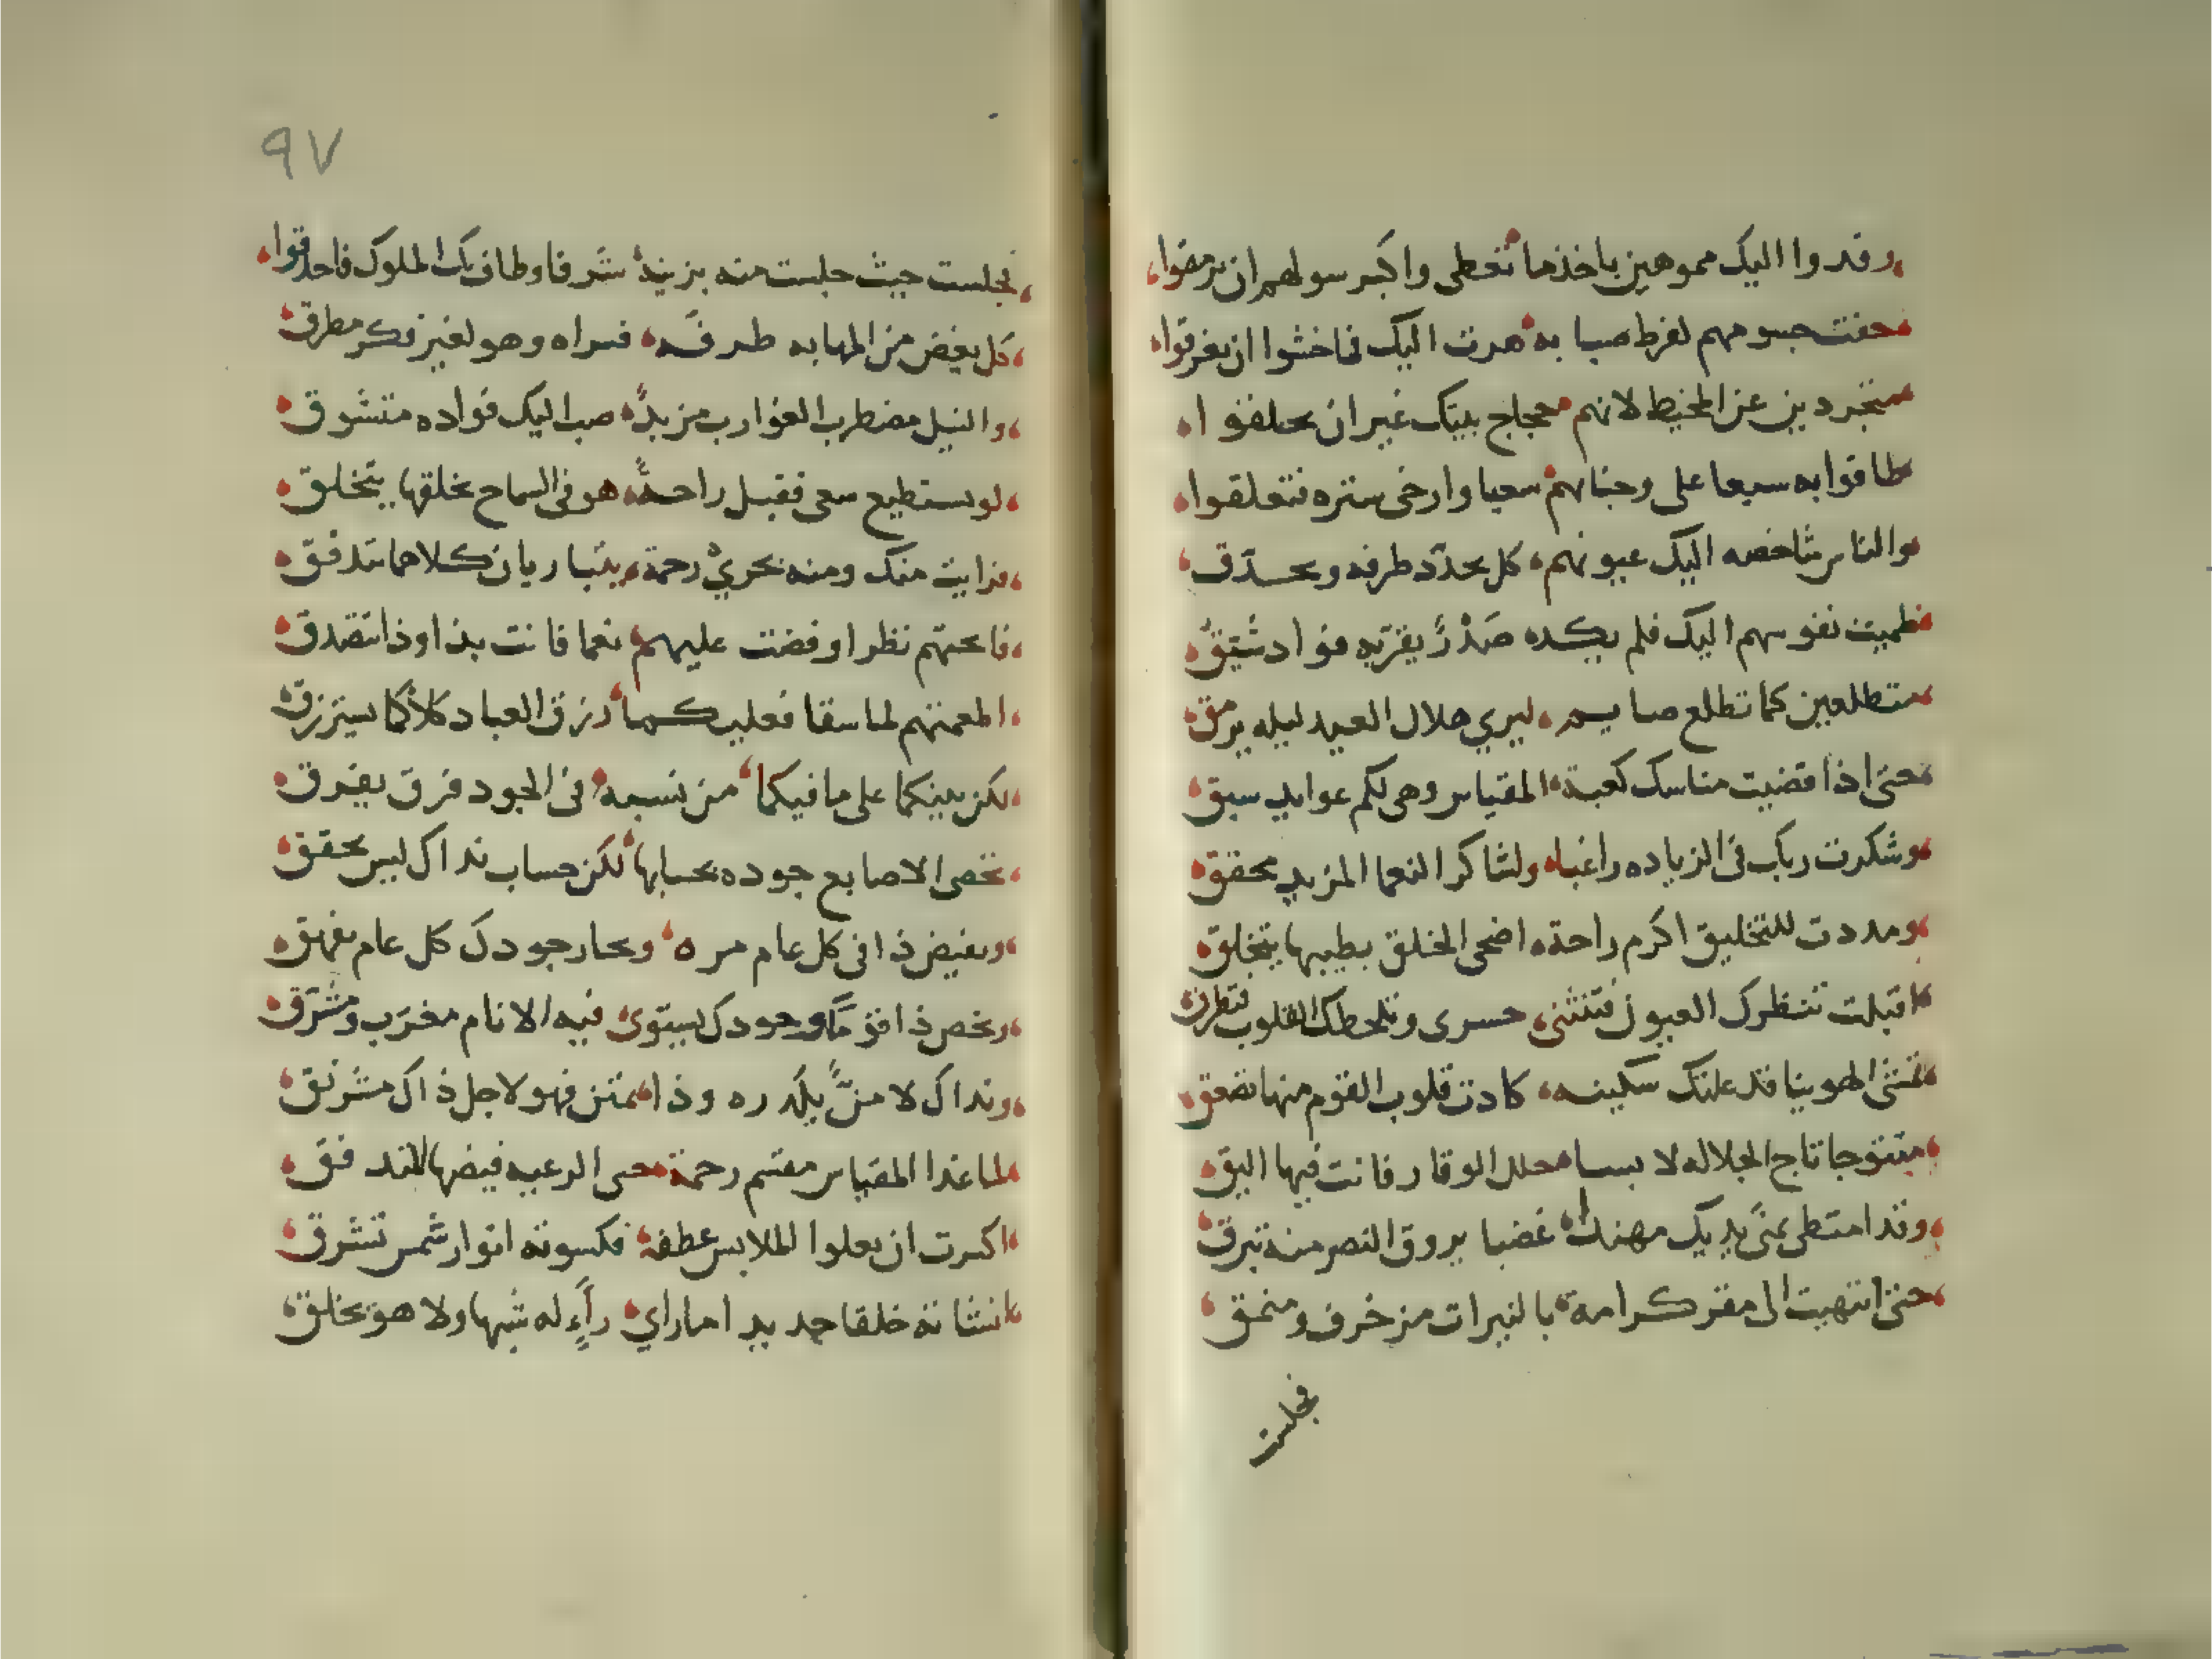 وفدوا اليك مموهين باخذ ما تعطى واكبر سولهم ان يرمقوا
خفت جسومهم لفرط صبابه هرت اليك فاخشوا ان يغرقوا
متجردين عن المخيط لانهم حجاج بيتك غير ان يحلقوا
طافوا به سبعا على وجناتهم سعيا وارخى ستره فتعلقوا
والناس شاخصه اليك عيونهم كل يحدد طرفه ويحدق
ظميت نفوسهم اليك فلم يكده صدر يقر به فواد شيق
متطلعين كما تطلع صايم ليري هلال العيد ليله يرمق
حتى اذا قضيت مناسك كعبة المقياس وهى لكم عوايد سبق
وشكرت ربك فى الزياده راغبا ولشاكر النعما المزيد محقق
ومددت للتخليق اكرم راحة اضحى الخلق بطيبها يتخلق
اقبلت تنظرك العيون فتنثنى حسرى وتلحظك القلوب فتطرق
تمشى الهوينا قد علتك سكينه كادت قلوب القوم منها تصعق
متتوجا تاج الجلاله لابسا حلل الوقار فانت فيها اليق
وقد امتطى يمنى يديك مهند غضبا بروق النصر منه تبرق
حتى انتهيت الى مقر كرامة بالنيرات مزخرف ومنمق
فجلست
٩٧
فجلست حيث جلست منه بزينة شرفا وطاف بك الملوك فاحدقوا
كل يغض من المهابه طرفه فتراه وهو لغير فكر مطرق
والنيل مضطرب الغوارب مزبد صب اليك فواده متشوق
لو يستطيع سعى فقبل راحة هو فى السماح بخلقها يتخلق
فرايت منك ومنه بحري رحمة يتباريان كلاهما يتدفق
فامحتهم نظرا وفضت عليهم نعما فانت بذا وذا تتصدق
اطعمتهم لما سقا فعليكما رزق العباد كلاكما يسترزق
لكن بينكما على ما فيكما من نسبة فى الجود فرق يفرق
تحصى الاصابع جوده بحسابها لكن حساب نداك ليس يحقق
ويفيض ذا فى كل عام مره وبحار جودك كل عام تفهق
ويخص ذا افقا وجودك يستوى فيه الانام مغرب ومشرق
ونداك لا من يكدره وذا يمتن فهو لاجل ذاك مشرنق
لما غدا المقياس مقسم رحمة تحى الرعيه فيضها المتدفق
اكبرت ان يعلوا الملابس عطفه فكسوته انوار شمس تشرق
انشاته خلقا جديدا ما راي راء له شبها ولا هو يخلق